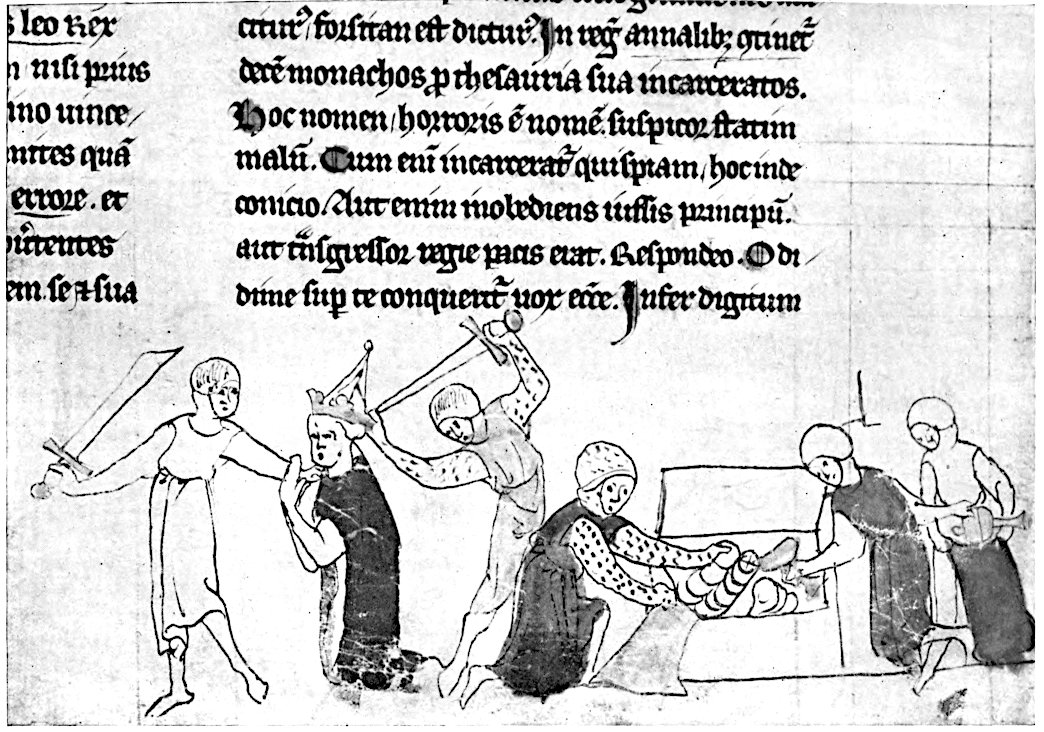 s leo Rex
nisi prius
ino uince/
mites quā
errore. et
potentes
em. se ⁊ sua
citur̉/ forsitan est dictur̉. In reḡ annalibꝫ ꝯtinet᷑
decē monachos ꝓ thesauria sua incarceratos.
Hoc nomen/ horroris ē nomē. suspicor statim
malū. Cum eni incarcerat᷑ quispiam/ hoc inde
conicio/ Aut enim inobediens iussis principū.
aut tͣnsgressor regie pacis erat. Respondeo. O di/
dime sup̱ te conquerit᷑ uox ecc̄e. Infer digitum